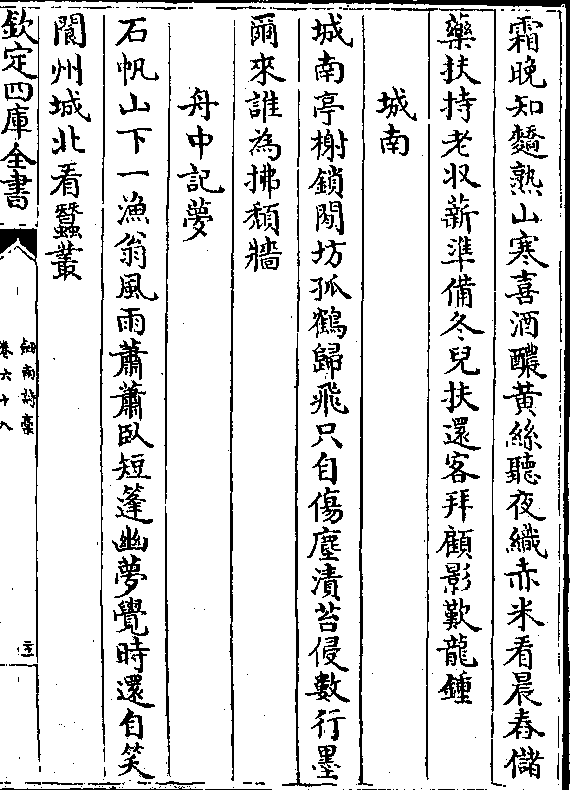 霜晚知麹熟山寒喜酒醲黄絲聽夜織赤米看晨舂儲
藥扶持老収薪準備冬兒扶還客拜顧影歎龍鍾
城南
城南亭榭鎖閒坊孤鶴歸飛只自傷塵漬苔侵數行墨
爾來誰為拂頽牆
舟中記夢
石帆山下一漁翁風雨蕭蕭臥短篷幽夢覺時還自笑
閬州城北看蠶叢
欽定四庫全書
劍南詩藁
卷六十八